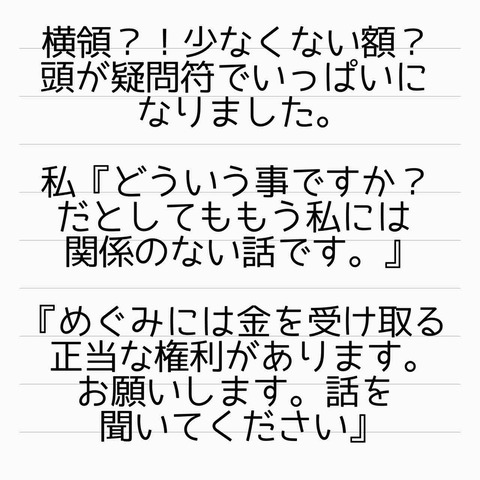 横領？！少なくない額？
頭が疑問符でいっぱいに
なりました。
私『どういう事ですか？
だとしてももう私には
関係のない話です。』
『めぐみには金を受け取る
正当な権利があります。
お願いします。話を
聞いてください』